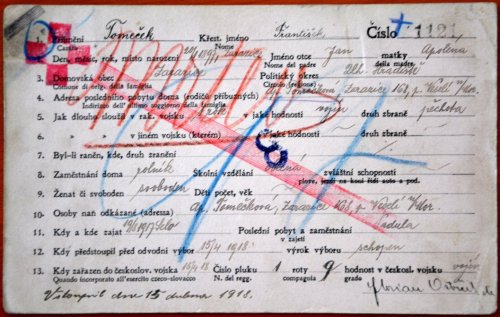 Příjmení Tomeček Křest. jméno František, Číslo 1121
Casato Nome
Den, měsíc, rok, místo národení Zarazice Jméno otce Jan matky Apolena
Nome del padre della madre
3. Domovská obec Zarazice Politický okres Uh. Hradiště
Comune di origine della famiglia
4. Adresa posledního pobytu doma (rodičů, příbuzných) Zarazice 168, p. Veselí n/Mor.
Indirizzo dell' ultimo soggiorno nella famiglia
5. Jak dlouho sloužil v rak. vojsku v jaké hodnosti vojín druh zbraně pěchota
6. " " v jiném vojsku (kterém) v jaké hodnosti druh zbraně
7. Byl-li raněn, kde, druh zranění
8. Zaměstnání doma rolník Školní vzdělání zvláštní schopnosti
plove, jezdí na koni řídí auto a pod.
9. Ženat či svoboden svoboden Dětí počet, věk
10. Osoby naň odkázané (adresa) Tomečková, Zarazice 168, p. Veselí n/Mor.
11. Kdy a kde zajat Poslední pobyt a zaměstnání Padula
v zajetí
12. Kdy předstoupil před odvodní výbor 15/4 1918. výrok výboru schopen
13. Kdy zařazen do českoslov. vojska 15/4 18 Číslo pluku 1 roty 9 hodnost v českosl. vojsku vojín
Quando incorporato all' esercizio czeco-slovacco N. del regg. compagnia grado
Vstoupil dne 15 dubna 1918. Florian